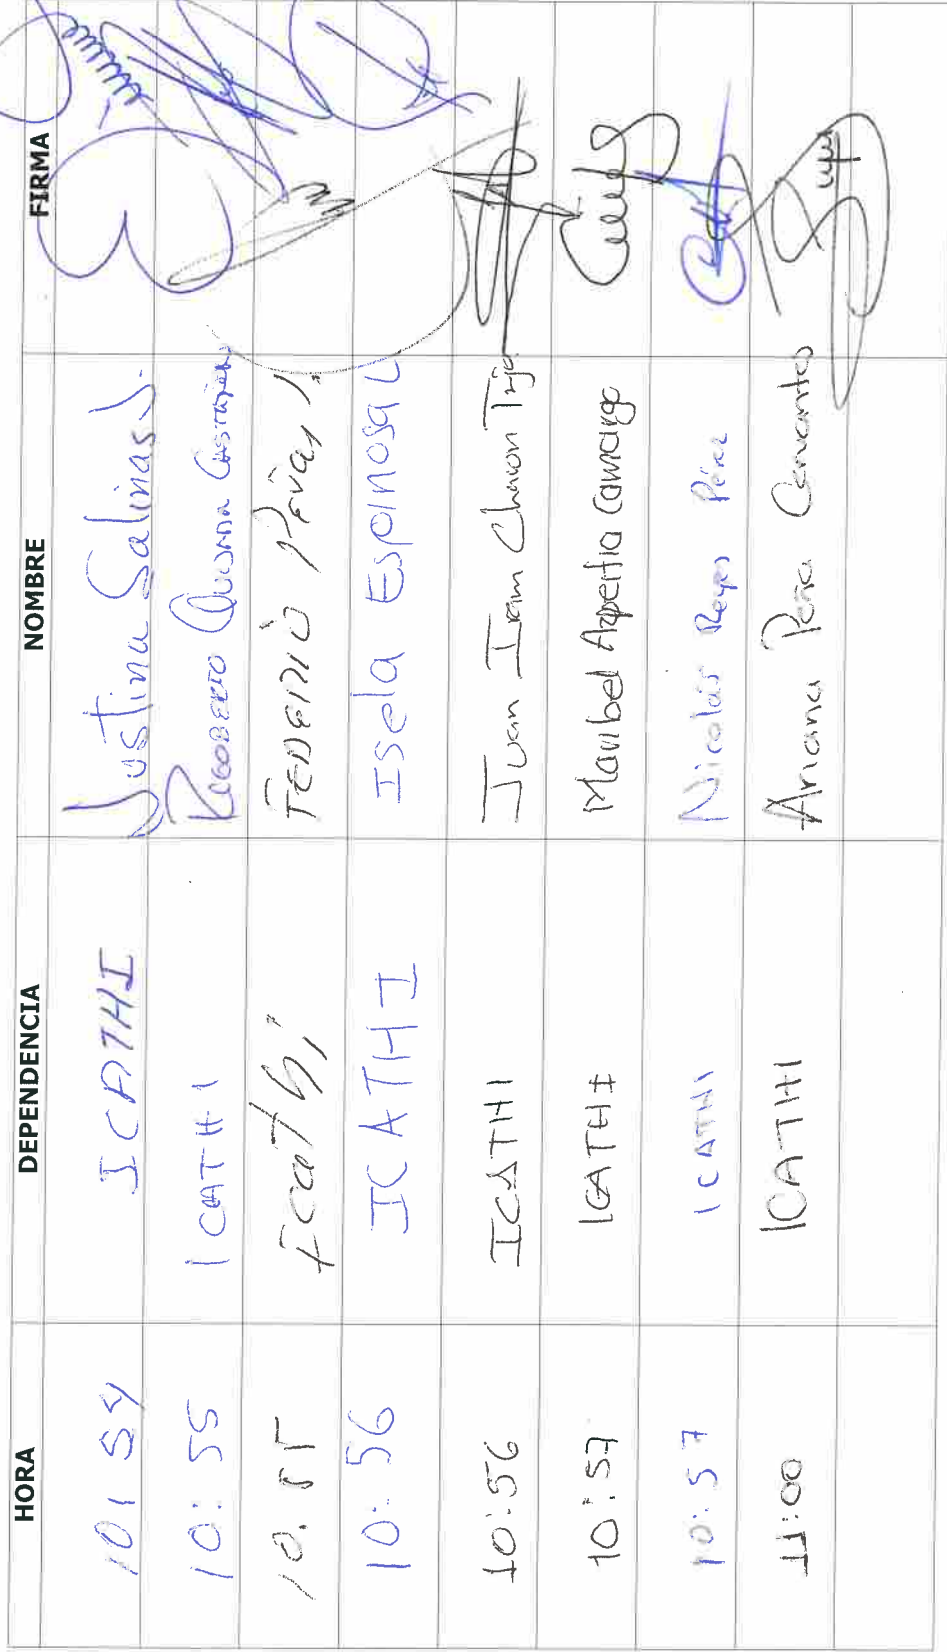 HORA DEPENDENCIA NOMBRE FIRMA
10:54 ICATHI Justina Salinas J.
10:55 ICATHI RIGOBERTO
10.55 Icathi FEDERICO
10:56 ICATHI Isela Espinosa L
10:56 ICATHI Juan Iram Chavon Trejo
10:57 ICATHI Maribel Azpeitia Camargo
10:57 ICATHI Nicolás Reyes Pérez
11:00 ICATHI Ariana Peña Cervantes